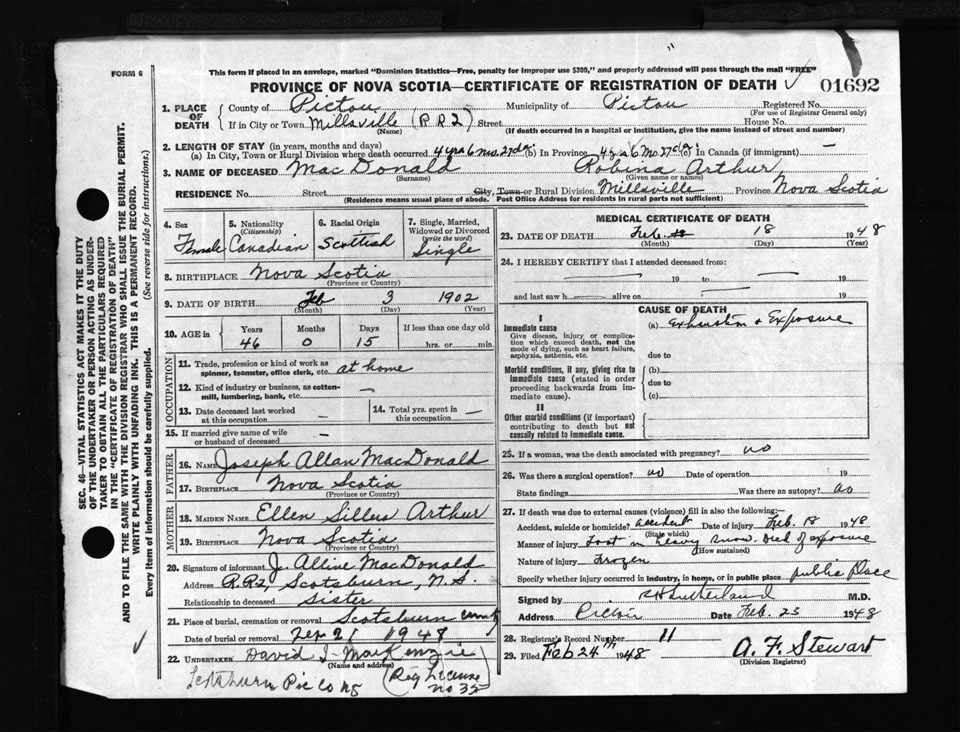 FORM 6
This form if placed in an envelope, marked "Dominion Statistics—Free, penalty for improper use $300," and properly addressed will pass through the mail "FREE"
PROVINCE OF NOVA SCOTIA—CERTIFICATE OF REGISTRATION OF DEATH
01692
1. PLACE OF DEATH
County of Pictou Municipality of Pictou Registered No.
(For use of Registrar General only)
If in City or Town Millsville (RR2) Street House No.
(Name) (If death occurred in a hospital or institution, give the name instead of street and number)
2. LENGTH OF STAY (in years, months and days)
(a) In City, Town or Rural Division where death occurred 4 yrs 6 mos. 27 da. (b) In Province 4 yrs 6 mo. 27 da (c) in Canada (if immigrant) —
3. NAME OF DECEASED MacDonald Robina Arthur
(Surname) (Given name or names)
RESIDENCE No. Street City, Town or Rural Division Millsville Province Nova Scotia
(Residence means usual place of abode. Post Office Address for residents in rural parts not sufficient)
4. Sex Female
5. Nationality (Citizenship) Canadian
6. Racial Origin Scottish
7. Single, Married, Widowed or Divorced (write the word) Single
8. BIRTHPLACE Nova Scotia
(Province or Country)
9. DATE OF BIRTH Feb 3 1902
(Month) (Day) (Year)
10. AGE in Years Months Days If less than one day old
46 0 15 hrs. or min.
OCCUPATION
11. Trade, profession or kind of work as spinner, teamster, office clerk, etc. at home
12. Kind of industry or business, as cotton-mill, lumbering, bank, etc. —
13. Date deceased last worked at this occupation —
14. Total yrs. spent in this occupation —
15. If married give name of wife or husband of deceased —
FATHER
16. NAME Joseph Allan MacDonald
17. BIRTHPLACE Nova Scotia
(Province or Country)
MOTHER
18. MAIDEN NAME Ellen Arthur
19. BIRTHPLACE Nova Scotia
(Province or Country)
20. Signature of informant J. MacDonald
Address R.R.2, Scotsburn, N.S.
Relationship to deceased Sister
21. Place of burial, cremation or removal Scotsburn
Date of burial or removal Feb 21 1948
22. UNDERTAKER David J. MacKenzie
(Name and address)
Pic Co NS
(Reg License no 35)
MEDICAL CERTIFICATE OF DEATH
23. DATE OF DEATH Feb. 18 1948
(Month) (Day) (Year)
24. I HEREBY CERTIFY that I attended deceased from:
— 19 to — 19
and last saw h— alive on — 19
CAUSE OF DEATH
I
Immediate cause
Give disease, injury or complication which caused death, not the mode of dying, such as heart failure, asphyxia, asthenia, etc.
(a) Exhaustion & Exposure
due to
Morbid conditions, if any, giving rise to immediate cause (stated in order proceeding backwards from immediate cause).
(b)
due to
(c)
II
Other morbid conditions (if important) contributing to death but not causally related to immediate cause.
25. If a woman, was the death associated with pregnancy? no
26. Was there a surgical operation? no Date of operation 19
State findings Was there an autopsy? no
27. If death was due to external causes (violence) fill in also the following:—
Accident, suicide or homicide? accident Date of injury Feb. 18 1948
(State which)
Manner of injury Lost in heavy snow. Died of exposure
(How sustained)
Nature of injury Frozen
Specify whether injury occurred in industry, in home, or in public place public place
Signed by Sutherland M.D.
Address Pictou Date Feb. 23 1948
28. Registrar's Record Number 11
29. Filed Feb 24th 1948 A. F. Stewart
(Division Registrar)
SEC. 46—VITAL STATISTICS ACT MAKES IT THE DUTY
OF THE UNDERTAKER OR PERSON ACTING AS UNDER-
TAKER TO OBTAIN ALL THE PARTICULARS REQUIRED
IN THE "CERTIFICATE OF REGISTRATION OF DEATH"
AND TO FILE THE SAME WITH THE DIVISION REGISTRAR WHO SHALL ISSUE THE BURIAL PERMIT.
WRITE PLAINLY WITH UNFADING INK. THIS IS A PERMANENT RECORD.
Every item of information should be carefully supplied. (See reverse side for instructions.)